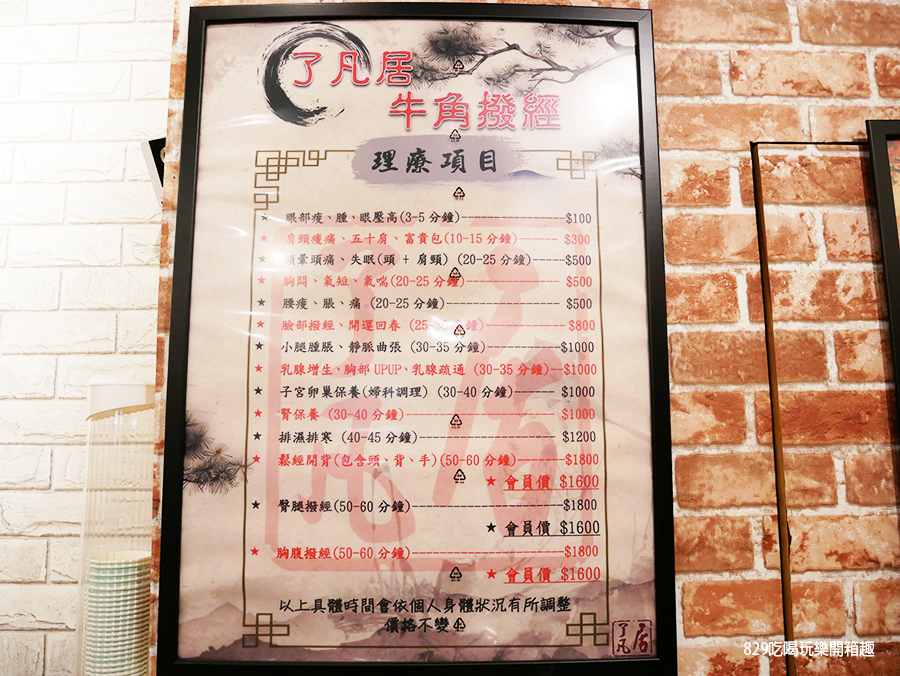 了凡居
牛角撥經
理療項目
★ 眼部痠、腫、眼壓高(3-5 分鐘)-----------------$100
★ 肩頸痠痛、五十肩、富貴包(10-15 分鐘)------ $300
★ 頭暈頭痛、失眠(頭 + 肩頸) (20-25 分鐘)-----$500
★ 胸悶、氣短、氣喘(20-25 分鐘)----------------- $500
★ 腰痠、脹、痛 (20-25 分鐘)-------------------- $500
★ 臉部撥經、開運回春 (25- 分鐘)-------------- $800
★ 小腿腫脹、靜脈曲張 (30-35 分鐘)------------$1000
★ 乳腺增生、胸部 UPUP、乳腺疏通 (30-35 分鐘)--$1000
★ 子宮卵巢保養(婦科調理) (30-40 分鐘)------ $1000
★ 腎保養 (30-40 分鐘)--------------------------$1000
★ 排濕排寒 (40-45 分鐘)------------------------$1200
★ 鬆經開背(包含頭、背、手)(50-60 分鐘)--------$1800
★ 會員價 $1600
★ 臀腿撥經(50-60 分鐘)-------------------------$1800
★ 會員價 $1600
★ 胸腹撥經(50-60 分鐘)-------------------------$1800
★ 會員價 $1600
以上具體時間會依個人身體狀況有所調整
價格不變
了凡居
829吃喝玩樂開箱趣